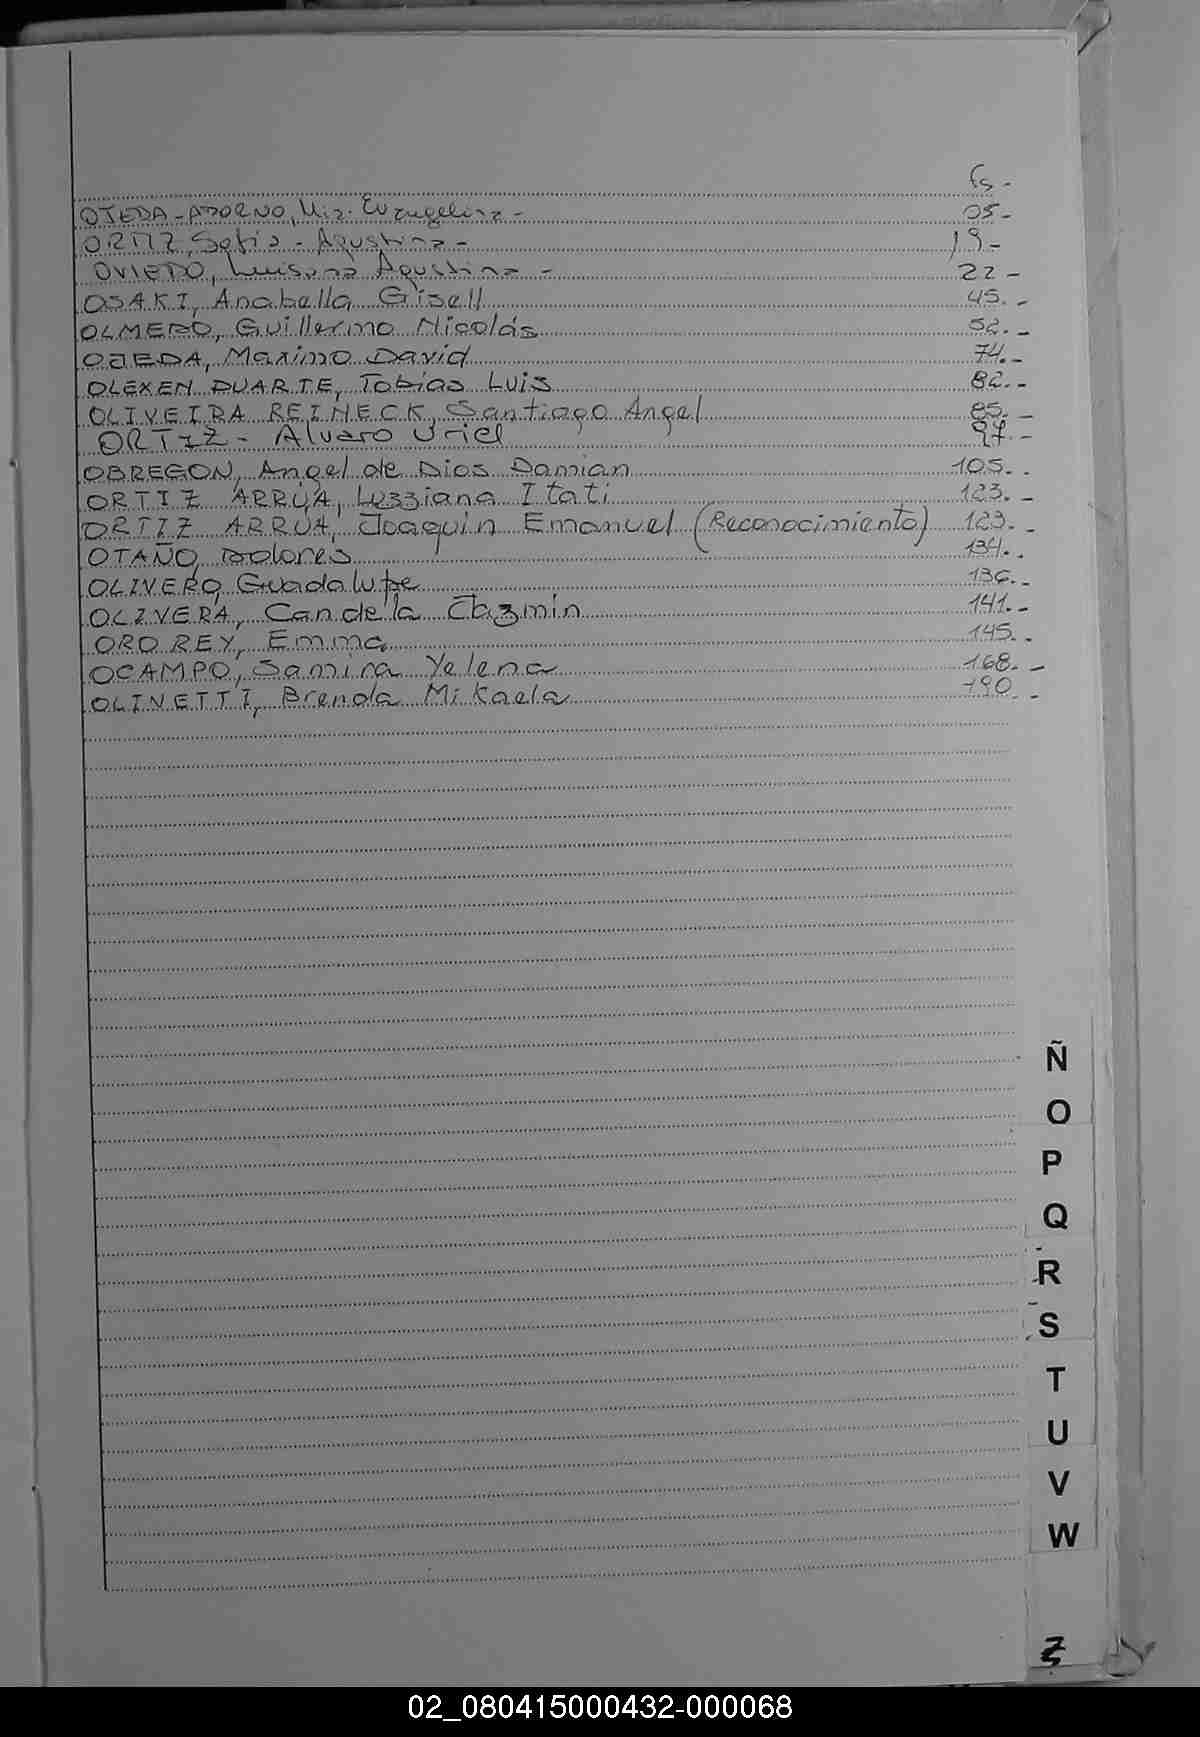 fs -
OJEDA - ADORNO, Mia. Evangelina - 05 -
ORTIZ, Sofia - Agustina - 19 -
OVIEDO, Luisana Agustina - 22 -
OSAKI, Anabella Gisell 45. -
OLMEDO, Guillermo Nicolás 52. -
OJEDA, Maximo David 74. -
OLEXEN DUARTE, Tobias Luis 82. -
OLIVEIRA REINECK, Santiago Angel 85. -
ORTIZ - Alvaro Uriel 97. -
OBREGON, Angel de Dios Damian 105. .
ORTIZ ARRUA, Luzziana Itati 123. -
ORTIZ ARRUA, Joaquin Emanuel (Reconocimiento) 123. -
OTAÑO, Dolores 134. .
OLIVERO, Guadalupe 136. -
OLIVERA, Candela Jazmin 141. -
ORO REY, Emma 145. .
OCAMPO, Samira Yelena 168. -
OLINETTI, Brenda Mikaela 190. -
Ñ
O
P
Q
R
S
T
U
V
W
Z
02_080415000432-000068